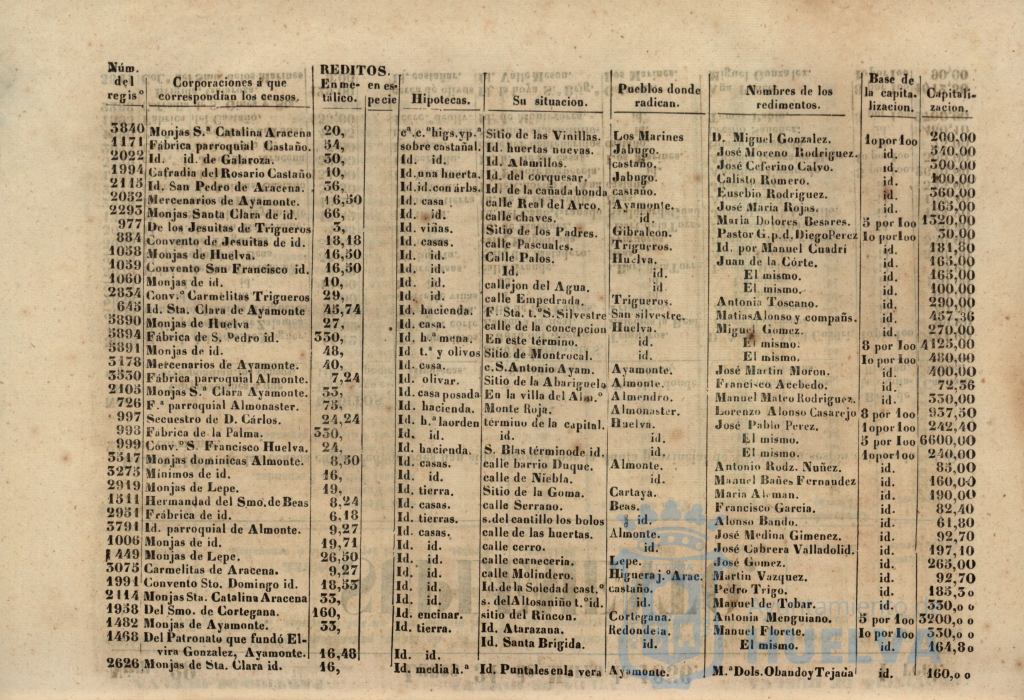 Núm. del regis° Corporaciones á que correspondian los censos. REDITOS. En metálico. en especie Hipotecas. Su situacion. Pueblos donde radican. Nombres de los redimentos. Base de la capitalizacion. Capitalizacion.
3840 Monjas S.ª Catalina Aracena 20, cª.c.ºhigs.yp.ª Sitio de las Vinillas. Los Marines D. Miguel Gonzalez. 10 por 100 200,00
1171 Fábrica parroquial Castaño. 54, sobre castañal. Id. huertas nuevas. Jabugo. José Moreno Rodriguez. id. 540,00
2022 Id. id. de Galaroza. 30, Id. id. Id. Alamillos. castaño. José Ceferino Calvo. id. 300,00
1994 Cafradia del Rosario Castaño 10, Id. una huerta. Id. del corquesar. Jabugo. Calisto Romero. id. 100,00
2115 Id. San Pedro de Aracena. 36, Id. id. con árbs. Id. de la cañada honda castaño. Eusebio Rodriguez. id. 360,00
2052 Mercenarios de Ayamonte. 16,50 Id. casa calle Real del Arco. Ayamonte. José Maria Rojas. id. 165,00
2293 Monjas Santa Clara de id. 66, Id. id. calle chaves. id. Maria Dolores Besares. 5 por 100 1320,00
977 De los Jesuitas de Trigueros 3, Id. viñas. Sitio de los Padres. Gibraleon. Pastor G.p.d. Diego Perez 10 por 100 30,00
884 Convento de Jesuitas de id. 18,18 Id. casas. calle Pascuales. Trigueros. Id. por Manuel Cuadri id. 181,80
1058 Monjas de Huelva. 16,50 Id. id. Calle Palos. Huelva. Juan de la Córte. id. 165,00
1059 Convento San Francisco id. 16,50 Id. id. Id. id. El mismo. id. 165,00
1060 Monjas de id. 10, Id. id. callejon del Agua. id. El mismo. id. 100,00
2834 Conv.º Carmelitas Trigueros 29, Id. id. calle Empedrada. Trigueros. Antonia Toscano. id. 290,00
645 Id. Sta. Clara de Ayamonte 45,74 Id. hacienda. F. Sta. t.ºS. Silvestre San silvestre. Matias Alonso y compañs. id. 457,36
3890 Monjas de Huelva 27, Id. casa. calle de la concepcion Huelva. Miguel Gomez. id. 270,00
3894 Fábrica de S. Pedro id. 330, Id. h.ª mena. En este término. id. El mismo. 8 por 100 4125,00
3891 Monjas de id. 48, Id t.ª y olivos Sitio de Montrocal. id. El mismo. 10 por 100 480,00
3178 Mercenarios de Ayamonte. 40, Id. casa. c.S. Antonio Ayam. Ayamonte. José Martin Moron. id. 400,00
3530 Fábrica parroquial Almonte. 7,24 Id. olivar. Sitio de la Abariguela Almonte. Francisco Acebedo. id. 72,36
2105 Monjas S.ª Clara Ayamonte 33, Id. casa posada En la villa del Alm.º Almendro. Manuel Matro Rodriguez. id. 330,00
726 F.ª parroquial Almonaster. 75, Id. hacienda. Monte Roja. Almonaster. Lorenzo Alonso Casarejo 8 por 100 937,50
997 Secuestro de D. Cárlos. 24,24 Id. h.ª laorden término de la capital. Huelva. José Pablo Perez. 10 por 100 242,40
993 Fabrica de la Palma. 330, Id. id. id. id. El mismo. 5 por 100 6600,00
999 Conv.º S. Francisco Huelva. 24, Id. hacienda. S. Blas término de id. id. El mismo. 10 por 100 240,00
3517 Monjas dominicas Almonte. 8,50 Id. casas. calle barrio Duque. Almonte. Antonio Rodz. Nuñez. id. 85,00
3275 Minimos de id. 16, Id. id. calle de Niebla. id. Manuel Bañes Fernandez id. 160,00
2919 Monjas de Lepe. 19, Id. tierra. Sitio de la Goma. Cartaya. Maria Aleman. id. 190,00
1511 Hermandad del Smo. de Beas 8,24 Id. casas. calle Serrano. Beas. Francisco Garcia. id. 82,40
2951 Frábrica de id. 6,18 Id. tierras. s. del cantillo los bolos id. Alonso Bando. id. 61,80
3791 Id. parroquial de Almonte. 9,27 Id. casas. calle de las huertas. Almonte. José Medina Gimenez. id. 92,70
1006 Monjas de id. 19,71 Id. id. calle cerro. id. José Cabrera Valladolid. id. 197,10
449 Monjas de Lepe. 26,50 Id. id. calle carneceria. Lepe. José Gomez. id. 265,00
3075 Carmelitas de Aracena. 9,27 Id. id. calle Molindero. Higuera j.º Arac. Martin Vazquez. id. 92,70
1991 Convento Sto. Domingo id. 18,53 Id. id. Id. de la Soledad cast.º castaño. Pedro Trigo. id. 185,30
2114 Monjas Sta. Catalina Aracena 33, Id. id. s. del Altosaniño t.º id. id. Manuel de Tobar. id. 330,00
1958 Del Smo. de Cortegana. 160, Id. encinar. sitio del Rincon. Cortegana. Antonia Menguiano. 5 por 100 3200,00
1482 Monjas de Ayamonte. 33, Id. tierra. Id. Atarazana. Redondela. Manuel Florete. 10 por 100 330,00
1468 Del Patronato que fundó El-
vira Gonzalez, Ayamonte. 16,48 Id. id. Id. Santa Brigida. id. El mismo. id. 164,80
2626 Monjas de Sta. Clara id. 16, Id. media h.ª Id. Puntales en la vera Ayamonte. M.ª Dols. Obando y Tejada id. 160,00
HUELVA